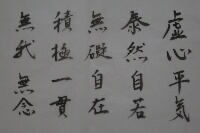 虚心平気
泰然自若
無礙自在
積極一貫
無我無念